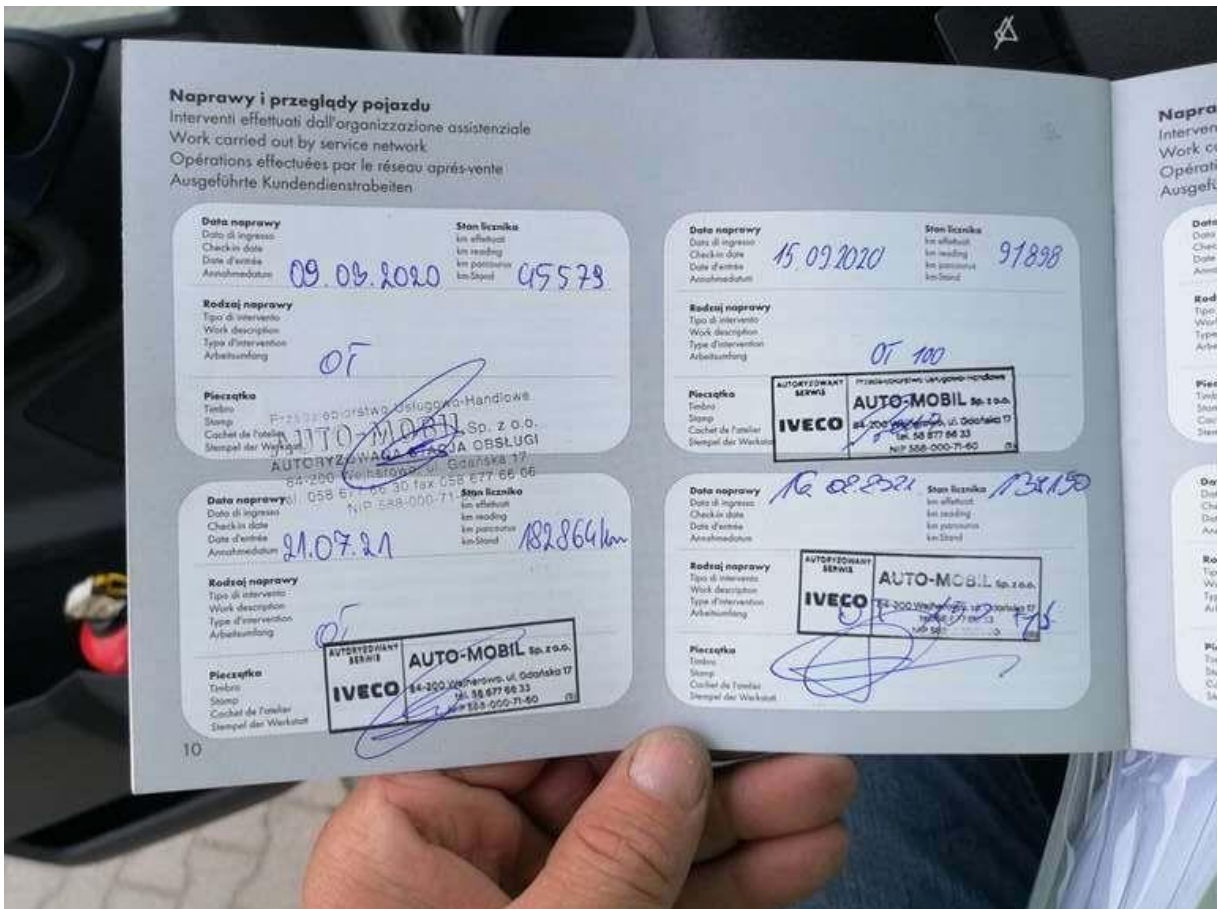 Naprawy i przeglądy pojazdu
Interventi effettuati dall'organizzazione assistenziale
Work carried out by service network
Opérations effectuées par le réseau aprés-vente
Ausgeführte Kundendienstrabeiten
Data naprawy
Data di ingresso
Check-in date
Date d'entrée
Annahmedatum
09.03.2020
Stan licznika
km effettuati
km reading
km parcourus
km-Stand
45579
Rodzaj naprawy
Tipo di intervento
Work description
Type d'intervention
Arbeitsumfang
OT
Pieczątka
Timbro
Stamp
Cachet de l'atelier
Stempel der Werkstatt
Przedsiębiorstwo Usługowo-Handlowe
AUTO-MOBIL Sp. z o.o.
AUTORYZOWANA STACJA OBSŁUGI
84-200 Wejherowo, ul. Gdańska 17
tel. 058 677 66 30 fax 058 677 66 06
NIP 588-000-71-
Data naprawy
Data di ingresso
Check-in date
Date d'entrée
Annahmedatum
15.092020
Stan licznika
km effettuati
km reading
km parcourus
km-Stand
91898
Rodzaj naprawy
Tipo di intervento
Work description
Type d'intervention
Arbeitsumfang
OT 100
Pieczątka
Timbro
Stamp
Cachet de l'atelier
Stempel der Werkstatt
AUTORYZOWANY
SERWIS
IVECO
Przedsiębiorstwo Usługowo-Handlowe
AUTO-MOBIL Sp. z o.o.
84-200 Wejherowo, ul. Gdańska 17
tel. 58 677 66 33
NIP 588-000-71-60 (5)
Data naprawy
Data di ingresso
Check-in date
Date d'entrée
Annahmedatum
21.07.21
Stan licznika
km effettuati
km reading
km parcourus
km-Stand
182864km
Rodzaj naprawy
Tipo di intervento
Work description
Type d'intervention
Arbeitsumfang
OT
Pieczątka
Timbro
Stamp
Cachet de l'atelier
Stempel der Werkstatt
AUTORYZOWANY
SERWIS
IVECO
AUTO-MOBIL Sp. z o.o.
84-200 Wejherowo, ul. Gdańska 17
tel. 58 677 66 33
NIP 588-000-71-60 (5)
Data naprawy
Data di ingresso
Check-in date
Date d'entrée
Annahmedatum
16.02.2021
Stan licznika
km effettuati
km reading
km parcourus
km-Stand
Rodzaj naprawy
Tipo di intervento
Work description
Type d'intervention
Arbeitsumfang
AUTORYZOWANY
SERWIS
IVECO
AUTO-MOBIL Sp. z o.o.
84-200 Wejherowo, ul. Gdańska 17
Pieczątka
Timbro
Stamp
Cachet de l'atelier
Stempel der Werkstatt
10